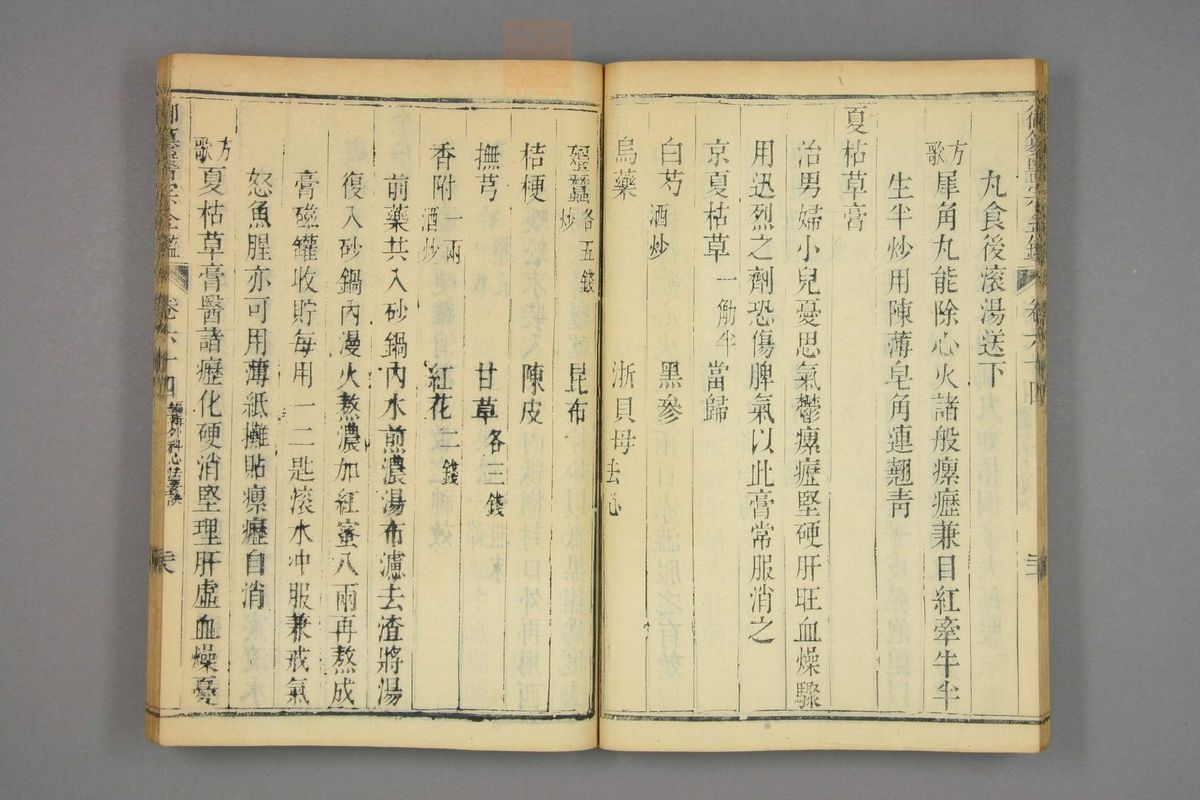 丸食後滾湯送下
方歌犀角丸能除心火諸般瘰癧兼目紅牽牛半
生半炒用陳薄皂角連翹青
夏枯草膏
治男婦小兒憂思氣鬱瘰癧堅硬肝旺血燥驟
用迅烈之劑恐傷脾氣以此膏常服消之
京夏枯草一觔半 當歸
白芍酒炒 黑參
烏藥 浙貝母去心
殭蠶各五錢炒 昆布
桔梗 陳皮
撫芎 甘草各三錢
香附一兩酒炒 紅花二錢
前藥共入砂鍋內水煎濃湯布濾去渣將湯
復入砂鍋內漫火熬濃加紅蜜八兩再熬成
膏磁罐收貯每用一二匙滾水冲服兼戒氣
怒魚腥亦可用薄紙攤貼瘰癧自消
方歌夏枯草膏醫諸癧化硬消堅理肝虛血燥憂
御纂醫宗金鑑 卷六十四 編輯外科心法要訣